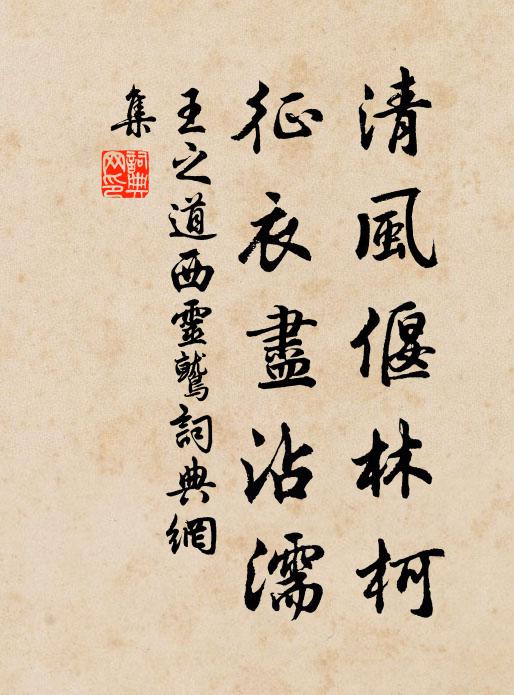 清風偃林柯
征衣盡沾濡
王之道西靈鷲詞典網
集
詞典
网印